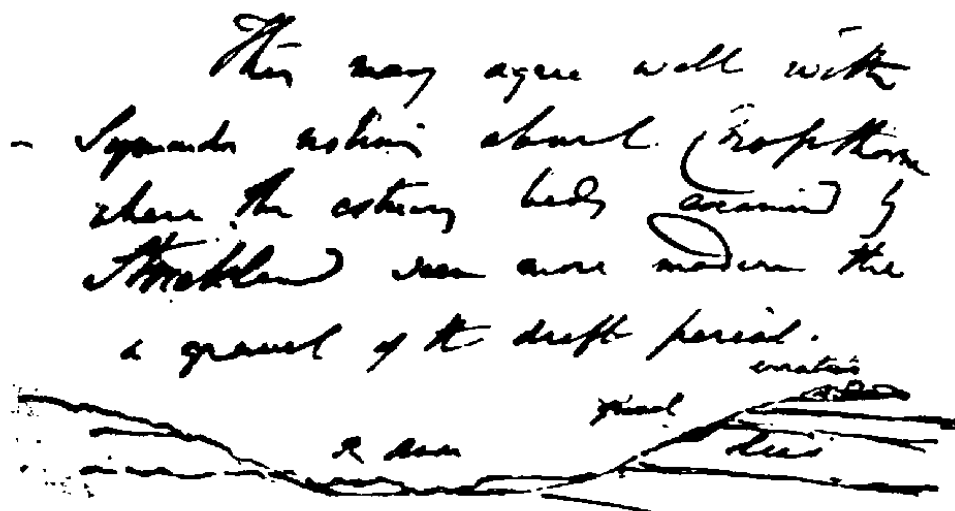 This may agree well with
- Symonds notions about Cropthorne
where the estuary beds examined by
Strickland seem more modern the
a gravel of the drift period.
erratics
gravel
R Avon
Lias